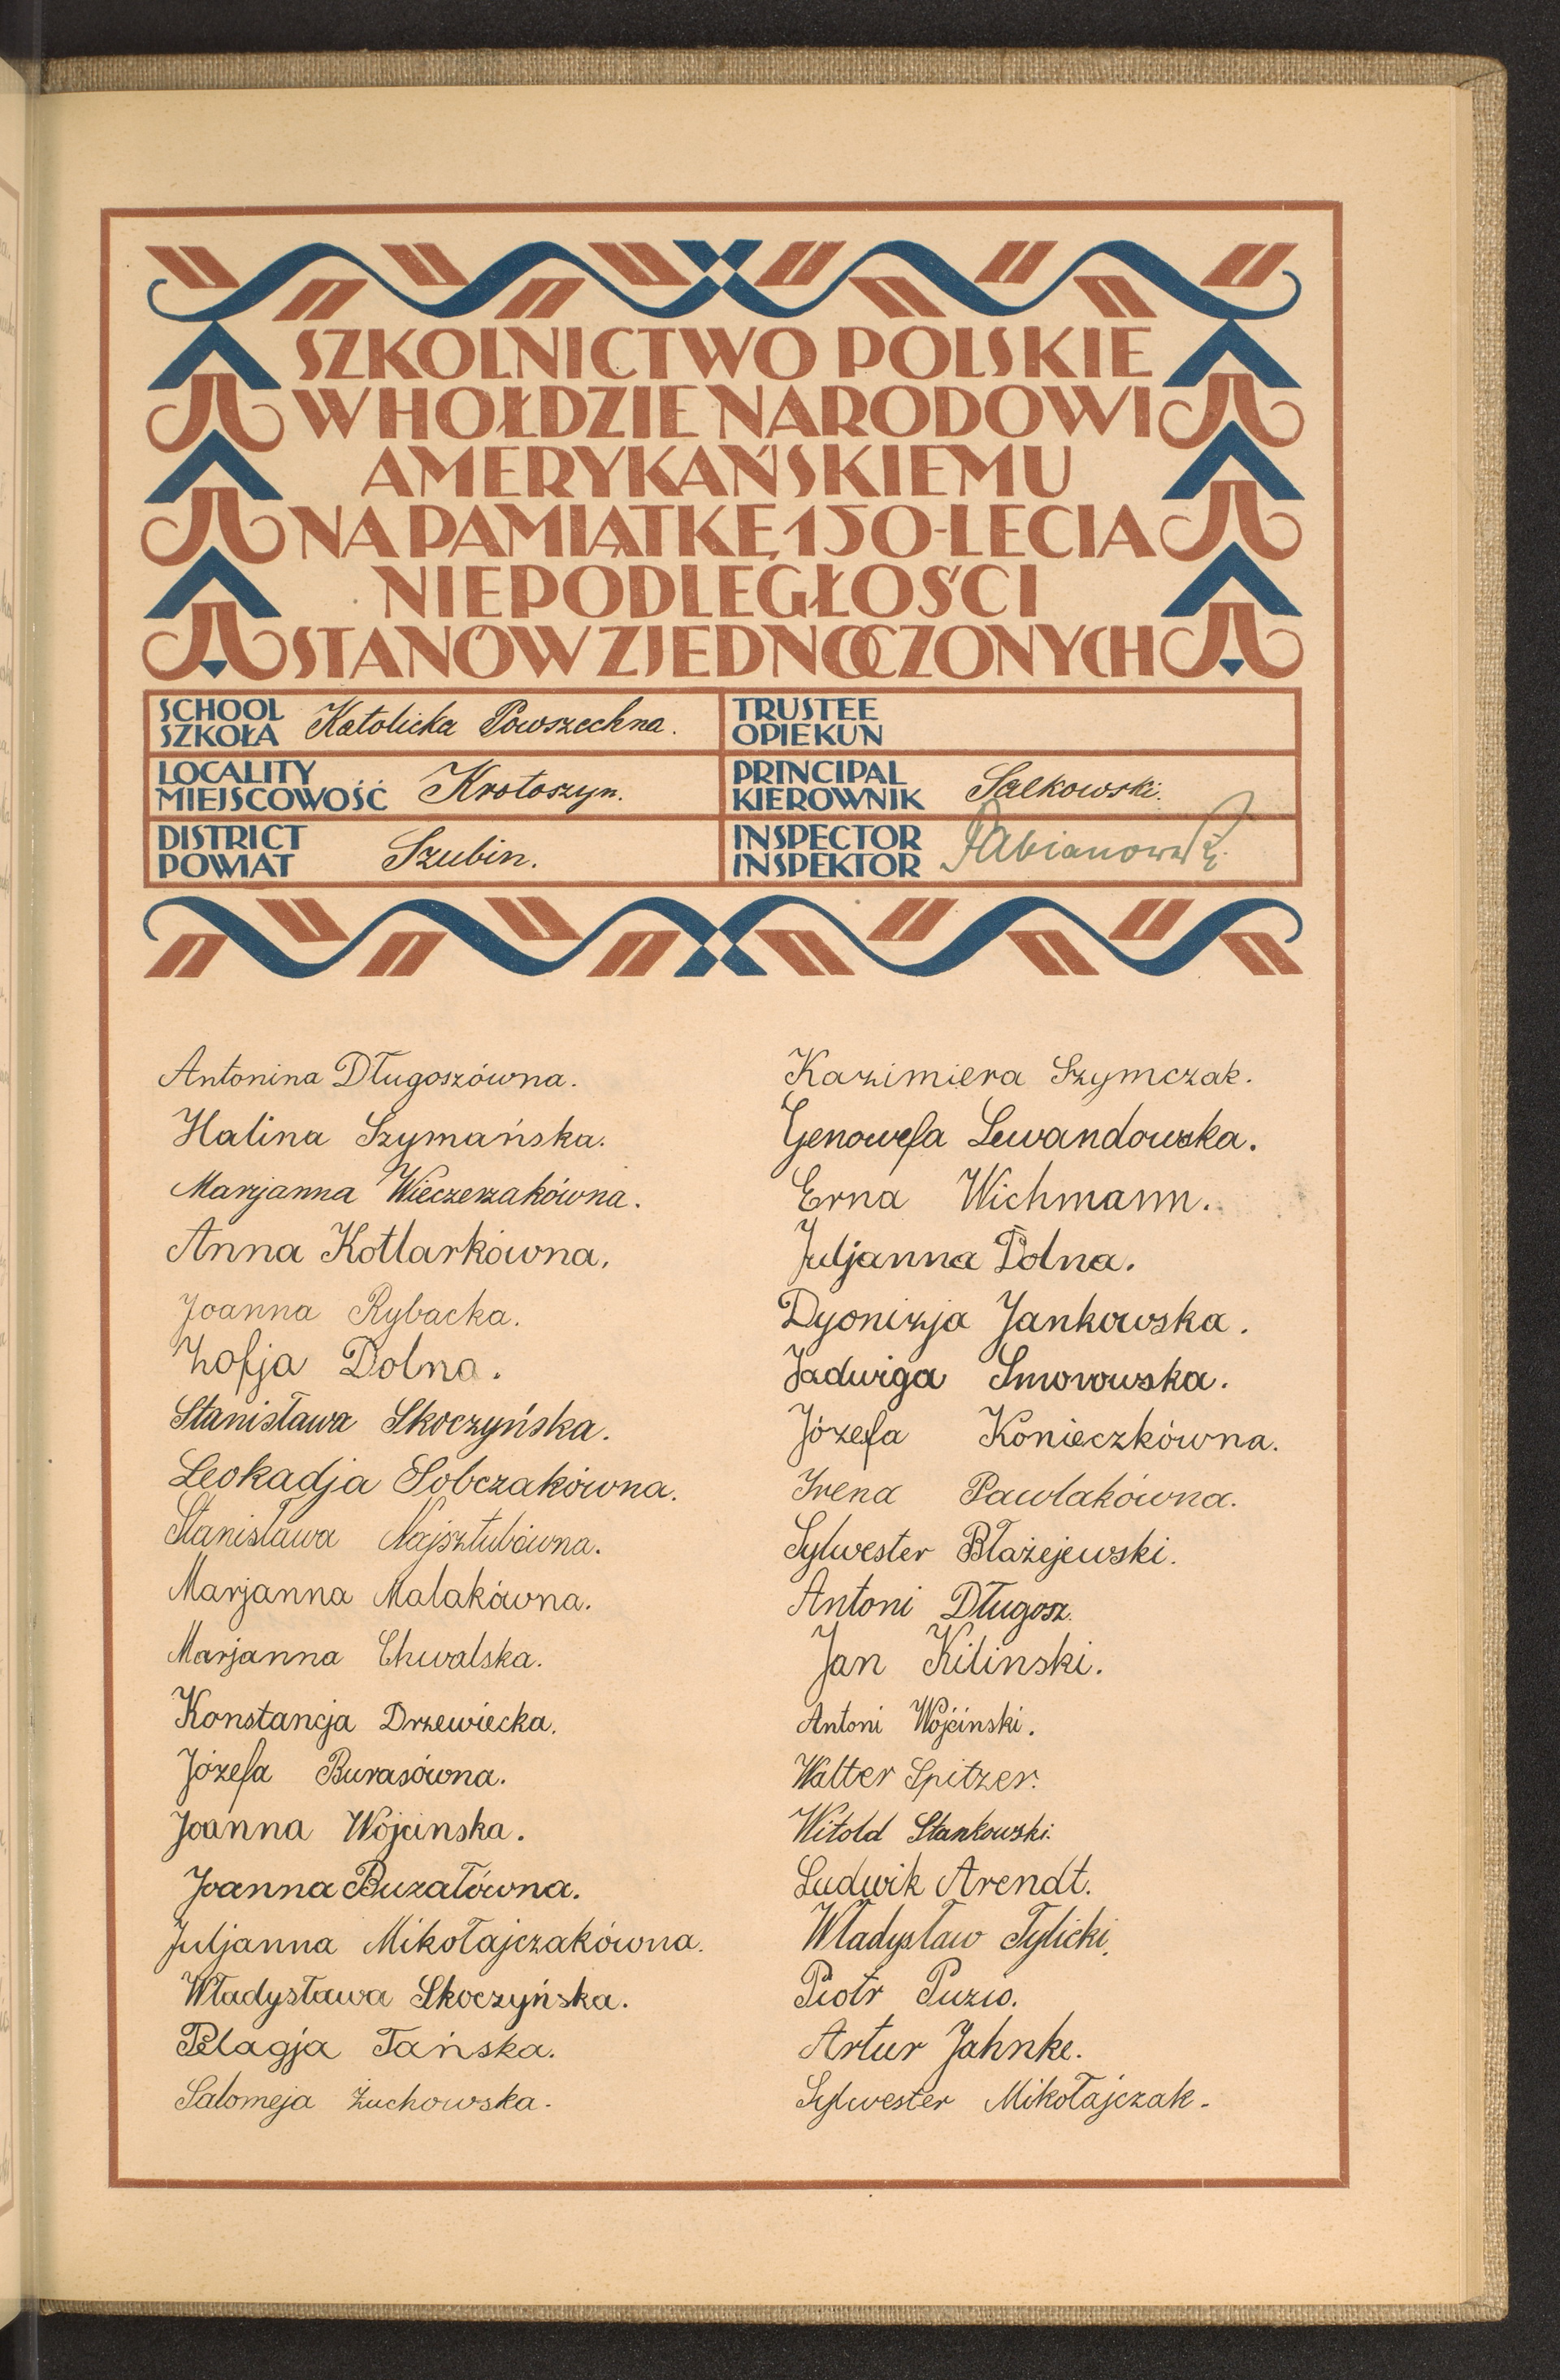 SZKOLNICTWO POLSKIE
W HOŁDZIE NARODOWI
AMERYKAŃSKIEMU
NA PAMIĄTKĘ 150-LECIA
NIEPODLEGŁOŚCI
STANÓW ZJEDNOCZONYCH
SCHOOL
SZKOŁA Katolicka Powszechna.
TRUSTEE
OPIEKUN
LOCALITY
MIEJSCOWOŚĆ Krotoszyn.
PRINCIPAL
KIEROWNIK Sałkowski.
DISTRICT
POWIAT Szubin.
INSPECTOR
INSPEKTOR Pabianowski
Antonina Długoszówna.
Halina Szymańska.
Marjanna Wieczerzakówna.
Anna Kotlarkówna.
Joanna Rybacka.
Zofja Dolna.
Stanisława Skoczyńska.
Leokadja Sobczakówna.
Stanisława Najsztubówna.
Marjanna Malakówna.
Marjanna Chwalska.
Konstancja Drzewiecka.
Józefa Burasówna.
Joanna Wójcinska.
Joanna Buzałówna.
Juljanna Mikołajczakówna.
Władysława Skoczyńska.
Pelagja Tańska.
Salomeja Żuchowska.
Kazimiera Szymczak.
Genowefa Lewandowska.
Erna Wichmann.
Juljanna Dolna.
Dyonizja Jankowska.
Jadwiga Smorowska.
Józefa Konieczkówna.
Irena Pawlakówna.
Sylwester Błażejewski.
Antoni Długosz.
Jan Kilinski.
Antoni Wójcinski.
Walter Spitzer.
Witold Stankowski.
Ludwik Arendt.
Władysław Tylicki.
Piotr Puzio.
Artur Jahnke.
Sylwester Mikołajczak.